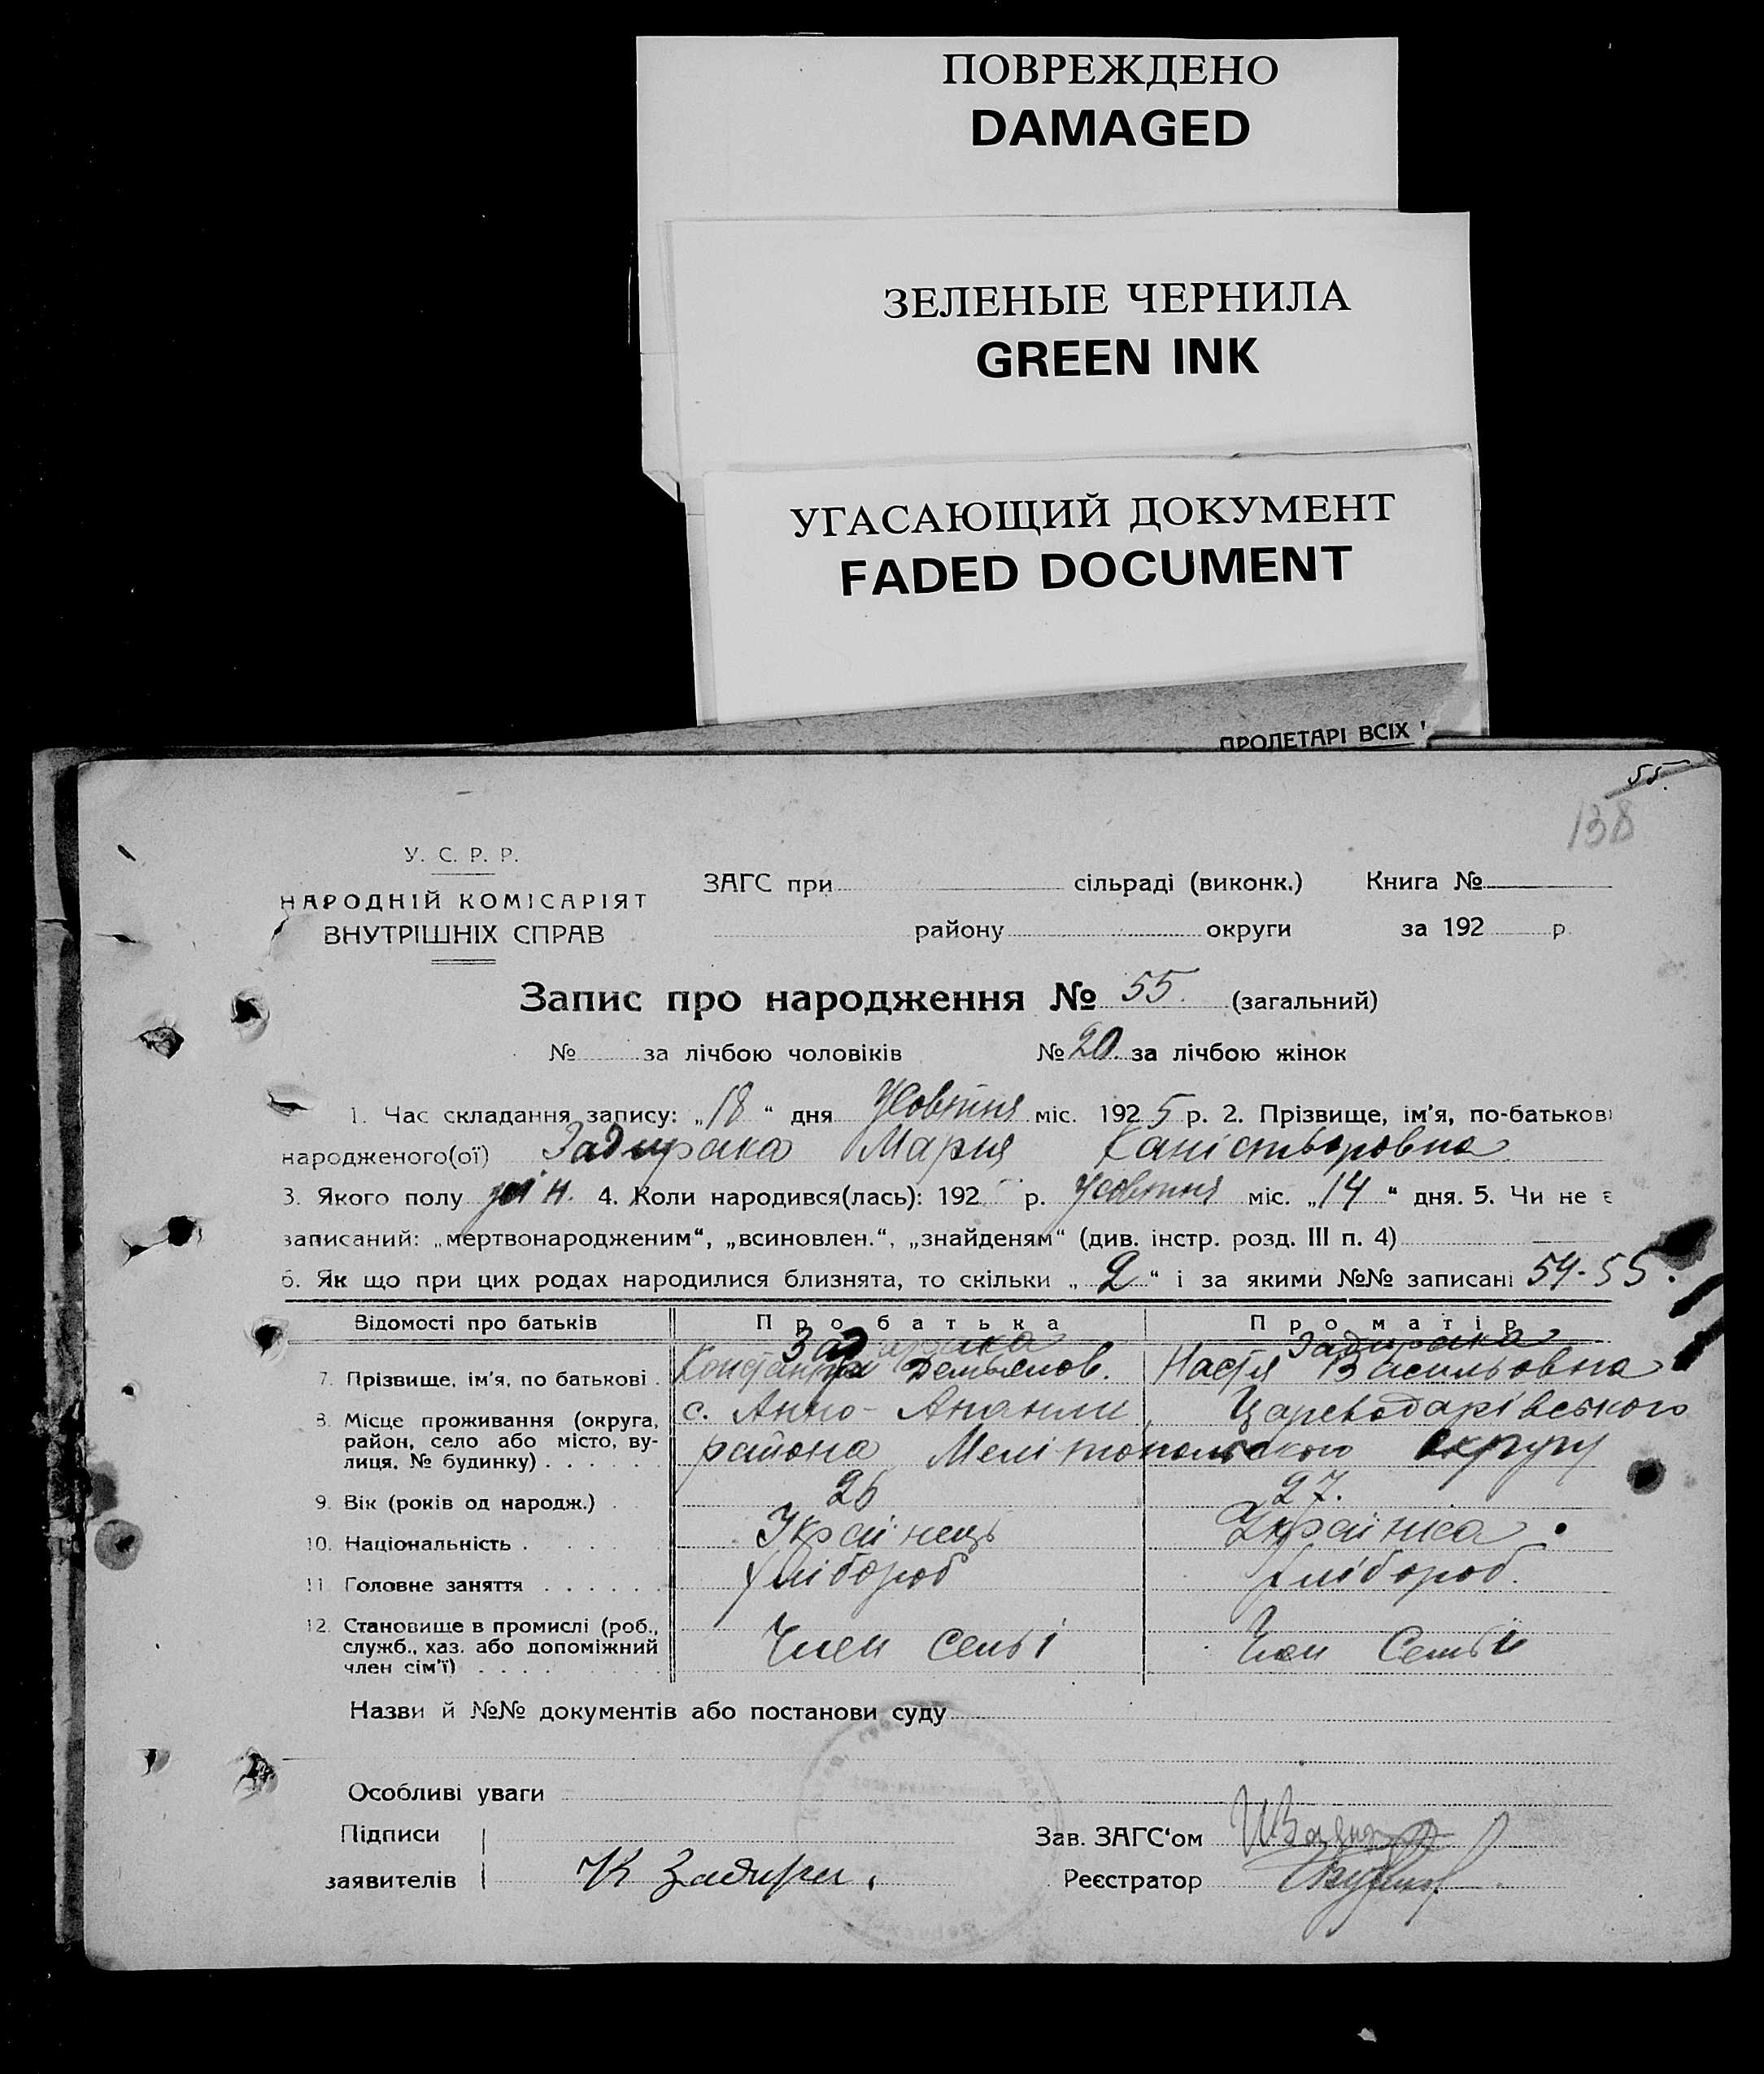 ПОВРЕЖДЕНО
DAMAGED
ЗЕЛЕНЫЕ ЧЕРНИЛА
GREEN INK
УГАСАЮЩИЙ ДОКУМЕНТ
FADED DOCUMENT
ПРОЛЕТАРІ ВСІХ
55.
138
У. С. Р. Р.
НАРОДНІЙ КОМІСАРІЯТ
ВНУТРІШНІХ СПРАВ
ЗАГС при сільраді (виконк.) Книга №
району округи за 192 р.
Запис про народження № 55. (загальний)
№ за лічбою чоловіків № 20. за лічбою жінок
1. Час складання запису: „18“ дня Жовтня міс. 1925 р. 2. Прізвище, ім'я, по-батькові
народженого(ої) Задирака Мария
3. Якого полу жін. 4. Коли народився(лась): 192 р. Жовтня міс. „14“ дня. 5. Чи не є
записаний: „мертвонародженим“, „всиновлен.“, „знайденям“ (див. інстр. розд. III п. 4)
6. Як що при цих родах народилися близнята, то скільки „2“ і за якими №№ записані 54-55.
Відомості про батьків Про батька Про матір
Задирака Задирака
7. Прізвище, ім'я, по батькові Демьянов. Настя Васильовна
8. Місце проживання (округа, район, село або місто, вулиця, № будинку) с. Анно- Цареводарівського
района Мелітопольского округу
9. Вік (років од народж.) 26 27.
10. Національність Українець Українка
11. Головне заняття хлібороб хлібороб.
12. Становище в промислі (роб., служб., хаз. або допоміжний член сім'ї) Член семьі Член Семьи
Назви й №№ документів або постанови суду
Особливі уваги
Підписи
заявителів К Задира
Зав. ЗАГС'ом
Реєстратор